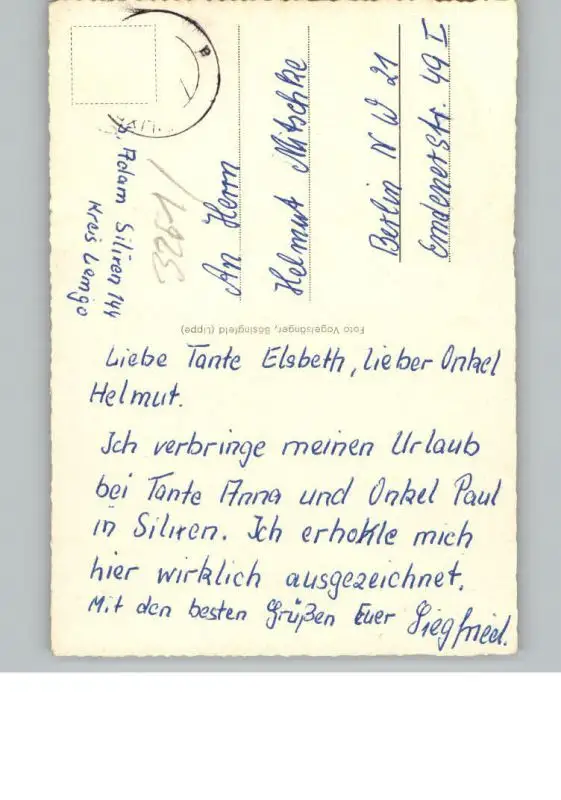 Adam Silixen 144
Kreis Lemgo
An Herrn
Helmut Nitschke
Berlin NW 21
Emdenerstr. 49 I
Foto Vogelsänger, Bösingfeld (Lippe)
Liebe Tante Elsbeth, lieber Onkel
Helmut.
Ich verbringe meinen Urlaub
bei Tante Anna und Onkel Paul
in Silixen. Ich erhohle mich
hier wirklich ausgezeichnet.
Mit den besten Grüßen Euer Siegfried.